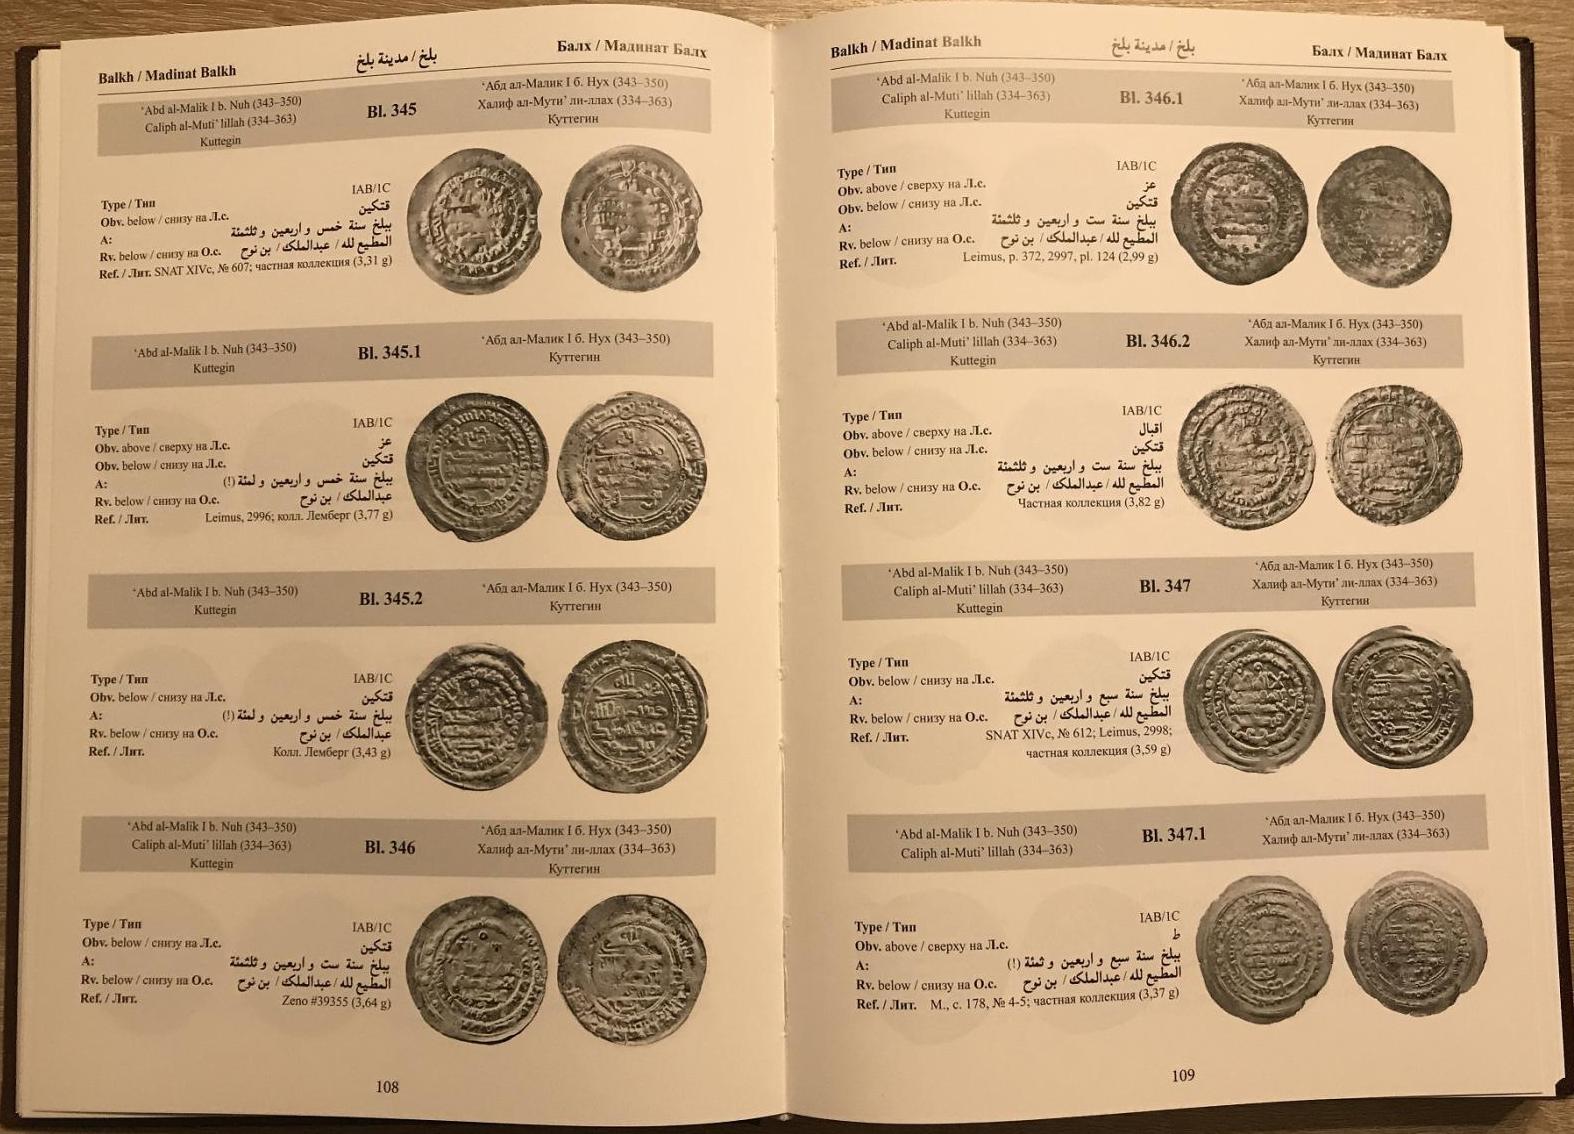 Balkh / Madinat Balkh بلخ / مدينة بلخ Балх / Мадинат Балх
‘Abd al-Malik I b. Nuh (343–350)
Caliph al-Muti’ lillah (334–363)
Kuttegin
Bl. 345
‘Абд ал-Малик I б. Нух (343–350)
Халиф ал-Мути’ ли-ллах (334–363)
Куттегин
Type / Тип IAB/1C
Obv. below / снизу на Л.с. قتكين
A: ببلخ سنة خمس و اربعين و ثلثمئة
Rv. below / снизу на О.с. المطيع لله / عبدالملك / بن نوح
Ref. / Лит. SNAT XIVc, № 607; частная коллекция (3,31 g)
‘Abd al-Malik I b. Nuh (343–350)
Kuttegin
Bl. 345.1
‘Абд ал-Малик I б. Нух (343–350)
Куттегин
Type / Тип IAB/1C
Obv. above / сверху на Л.с. عز
Obv. below / снизу на Л.с. قتكين
A: ببلخ سنة خمس و اربعين و لمئة (!)
Rv. below / снизу на О.с. عبدالملك / بن نوح
Ref. / Лит. Leimus, 2996; колл. Лемберг (3,77 g)
‘Abd al-Malik I b. Nuh (343–350)
Kuttegin
Bl. 345.2
‘Абд ал-Малик I б. Нух (343–350)
Куттегин
Type / Тип IAB/1C
Obv. below / снизу на Л.с. قتكين
A: ببلخ سنة خمس و اربعين و لمئة (!)
Rv. below / снизу на О.с. عبدالملك / بن نوح
Ref. / Лит. Колл. Лемберг (3,43 g)
‘Abd al-Malik I b. Nuh (343–350)
Caliph al-Muti’ lillah (334–363)
Kuttegin
Bl. 346
‘Абд ал-Малик I б. Нух (343–350)
Халиф ал-Мути’ ли-ллах (334–363)
Куттегин
Type / Тип IAB/1C
Obv. below / снизу на Л.с. قتكين
A: ببلخ سنة ست و اربعين و ثلثمئة
Rv. below / снизу на О.с. المطيع لله / عبدالملك / بن نوح
Ref. / Лит. Zeno #39355 (3,64 g)
108
Balkh / Madinat Balkh بلخ / مدينة بلخ Балх / Мадинат Балх
‘Abd al-Malik I b. Nuh (343–350)
Caliph al-Muti’ lillah (334–363)
Kuttegin
Bl. 346.1
‘Абд ал-Малик I б. Нух (343–350)
Халиф ал-Мути’ ли-ллах (334–363)
Куттегин
Type / Тип IAB/1C
Obv. above / сверху на Л.с. عز
Obv. below / снизу на Л.с. قتكين
A: ببلخ سنة ست و اربعين و ثلثمئة
Rv. below / снизу на О.с. المطيع لله / عبدالملك / بن نوح
Ref. / Лит. Leimus, p. 372, 2997, pl. 124 (2,99 g)
‘Abd al-Malik I b. Nuh (343–350)
Caliph al-Muti’ lillah (334–363)
Kuttegin
Bl. 346.2
‘Абд ал-Малик I б. Нух (343–350)
Халиф ал-Мути’ ли-ллах (334–363)
Куттегин
Type / Тип IAB/1C
Obv. above / сверху на Л.с. اقبال
Obv. below / снизу на Л.с. قتكين
A: ببلخ سنة ست و اربعين و ثلثمئة
Rv. below / снизу на О.с. المطيع لله / عبدالملك / بن نوح
Ref. / Лит. Частная коллекция (3,82 g)
‘Abd al-Malik I b. Nuh (343–350)
Caliph al-Muti’ lillah (334–363)
Kuttegin
Bl. 347
‘Абд ал-Малик I б. Нух (343–350)
Халиф ал-Мути’ ли-ллах (334–363)
Куттегин
Type / Тип IAB/1C
Obv. below / снизу на Л.с. قتكين
A: ببلخ سنة سبع و اربعين و ثلثمئة
Rv. below / снизу на О.с. المطيع لله / عبدالملك / بن نوح
Ref. / Лит. SNAT XIVc, № 612; Leimus, 2998;
частная коллекция (3,59 g)
‘Abd al-Malik I b. Nuh (343–350)
Caliph al-Muti’ lillah (334–363)
Bl. 347.1
‘Абд ал-Малик I б. Нух (343–350)
Халиф ал-Мути’ ли-ллах (334–363)
Type / Тип IAB/1C
Obv. above / сверху на Л.с. ط
A: ببلخ سنة سبع و اربعين و ثمئة (!)
Rv. below / снизу на О.с. المطيع لله / عبدالملك / بن نوح
Ref. / Лит. М., с. 178, № 4-5; частная коллекция (3,37 g)
109